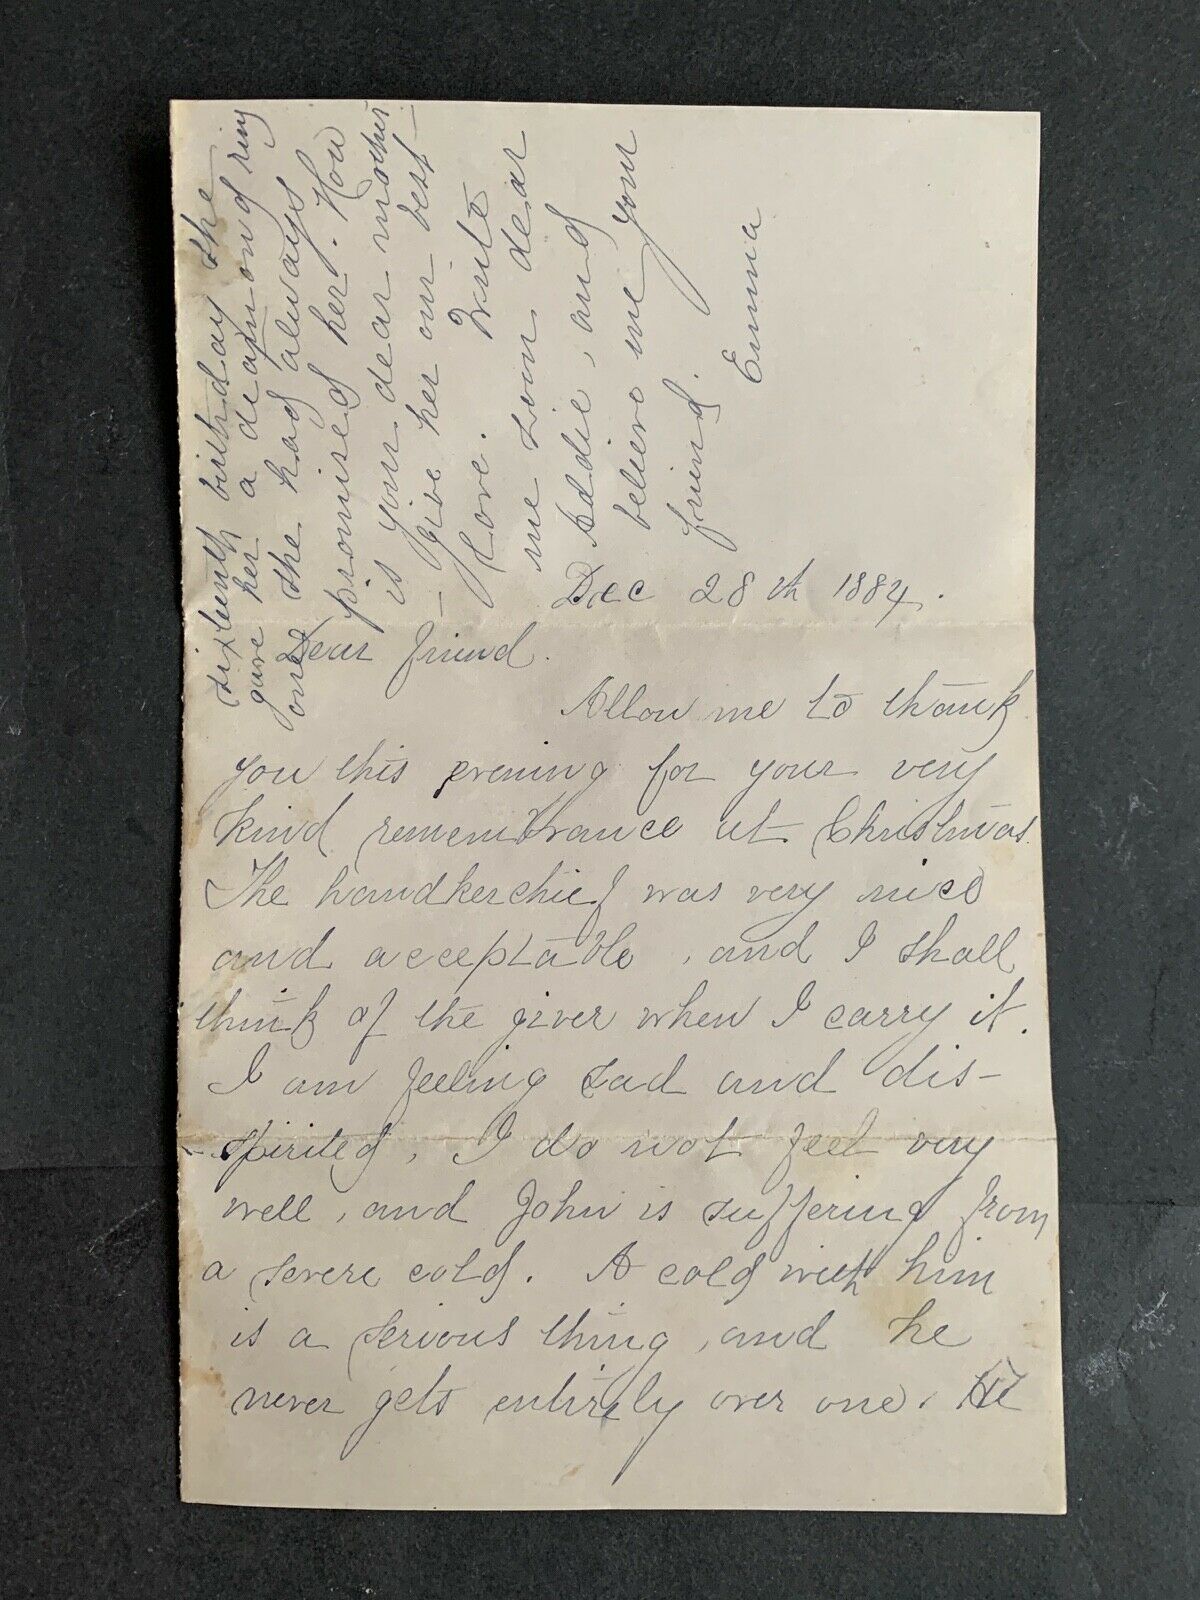 Dec 28th 1884.
Dear friend.
Allow me to thank
you this evening for your very
kind remembrance at Christmas.
The handkerchief was very nice
and acceptable, and I shall
think of the giver when I carry it.
I am feeling sad and dis-
-spirited, I do not feel very
well, and John is suffering from
a severe cold. A cold with him
is a serious thing, and he
never gets entirely over one. He
sixteenth birthday she
gave her a diamond ring
one she had always
promised her. How
is your dear mother
- Give her our best -
Love. Write
me soon dear
Addie, and
believe me your
friend.
Emma